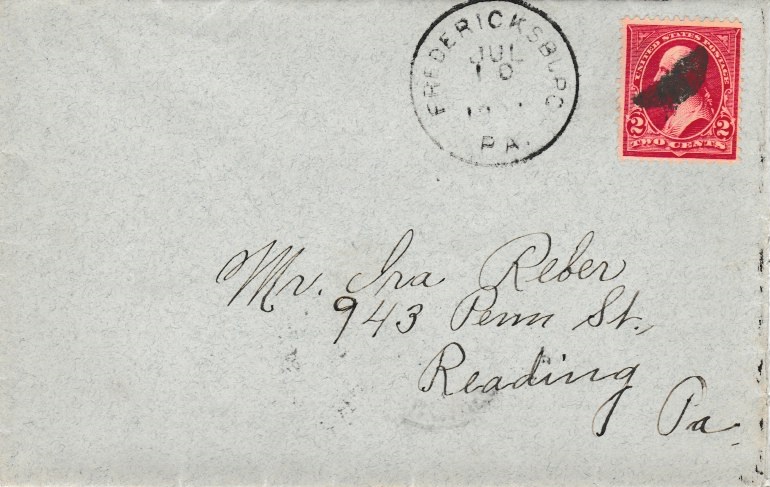 FREDERICKSBURG
JUL
10
PA.
UNITED STATES POSTAGE
2 2
TWO CENTS
Mr. Ira Reber
943 Penn St.,
Reading
Pa.